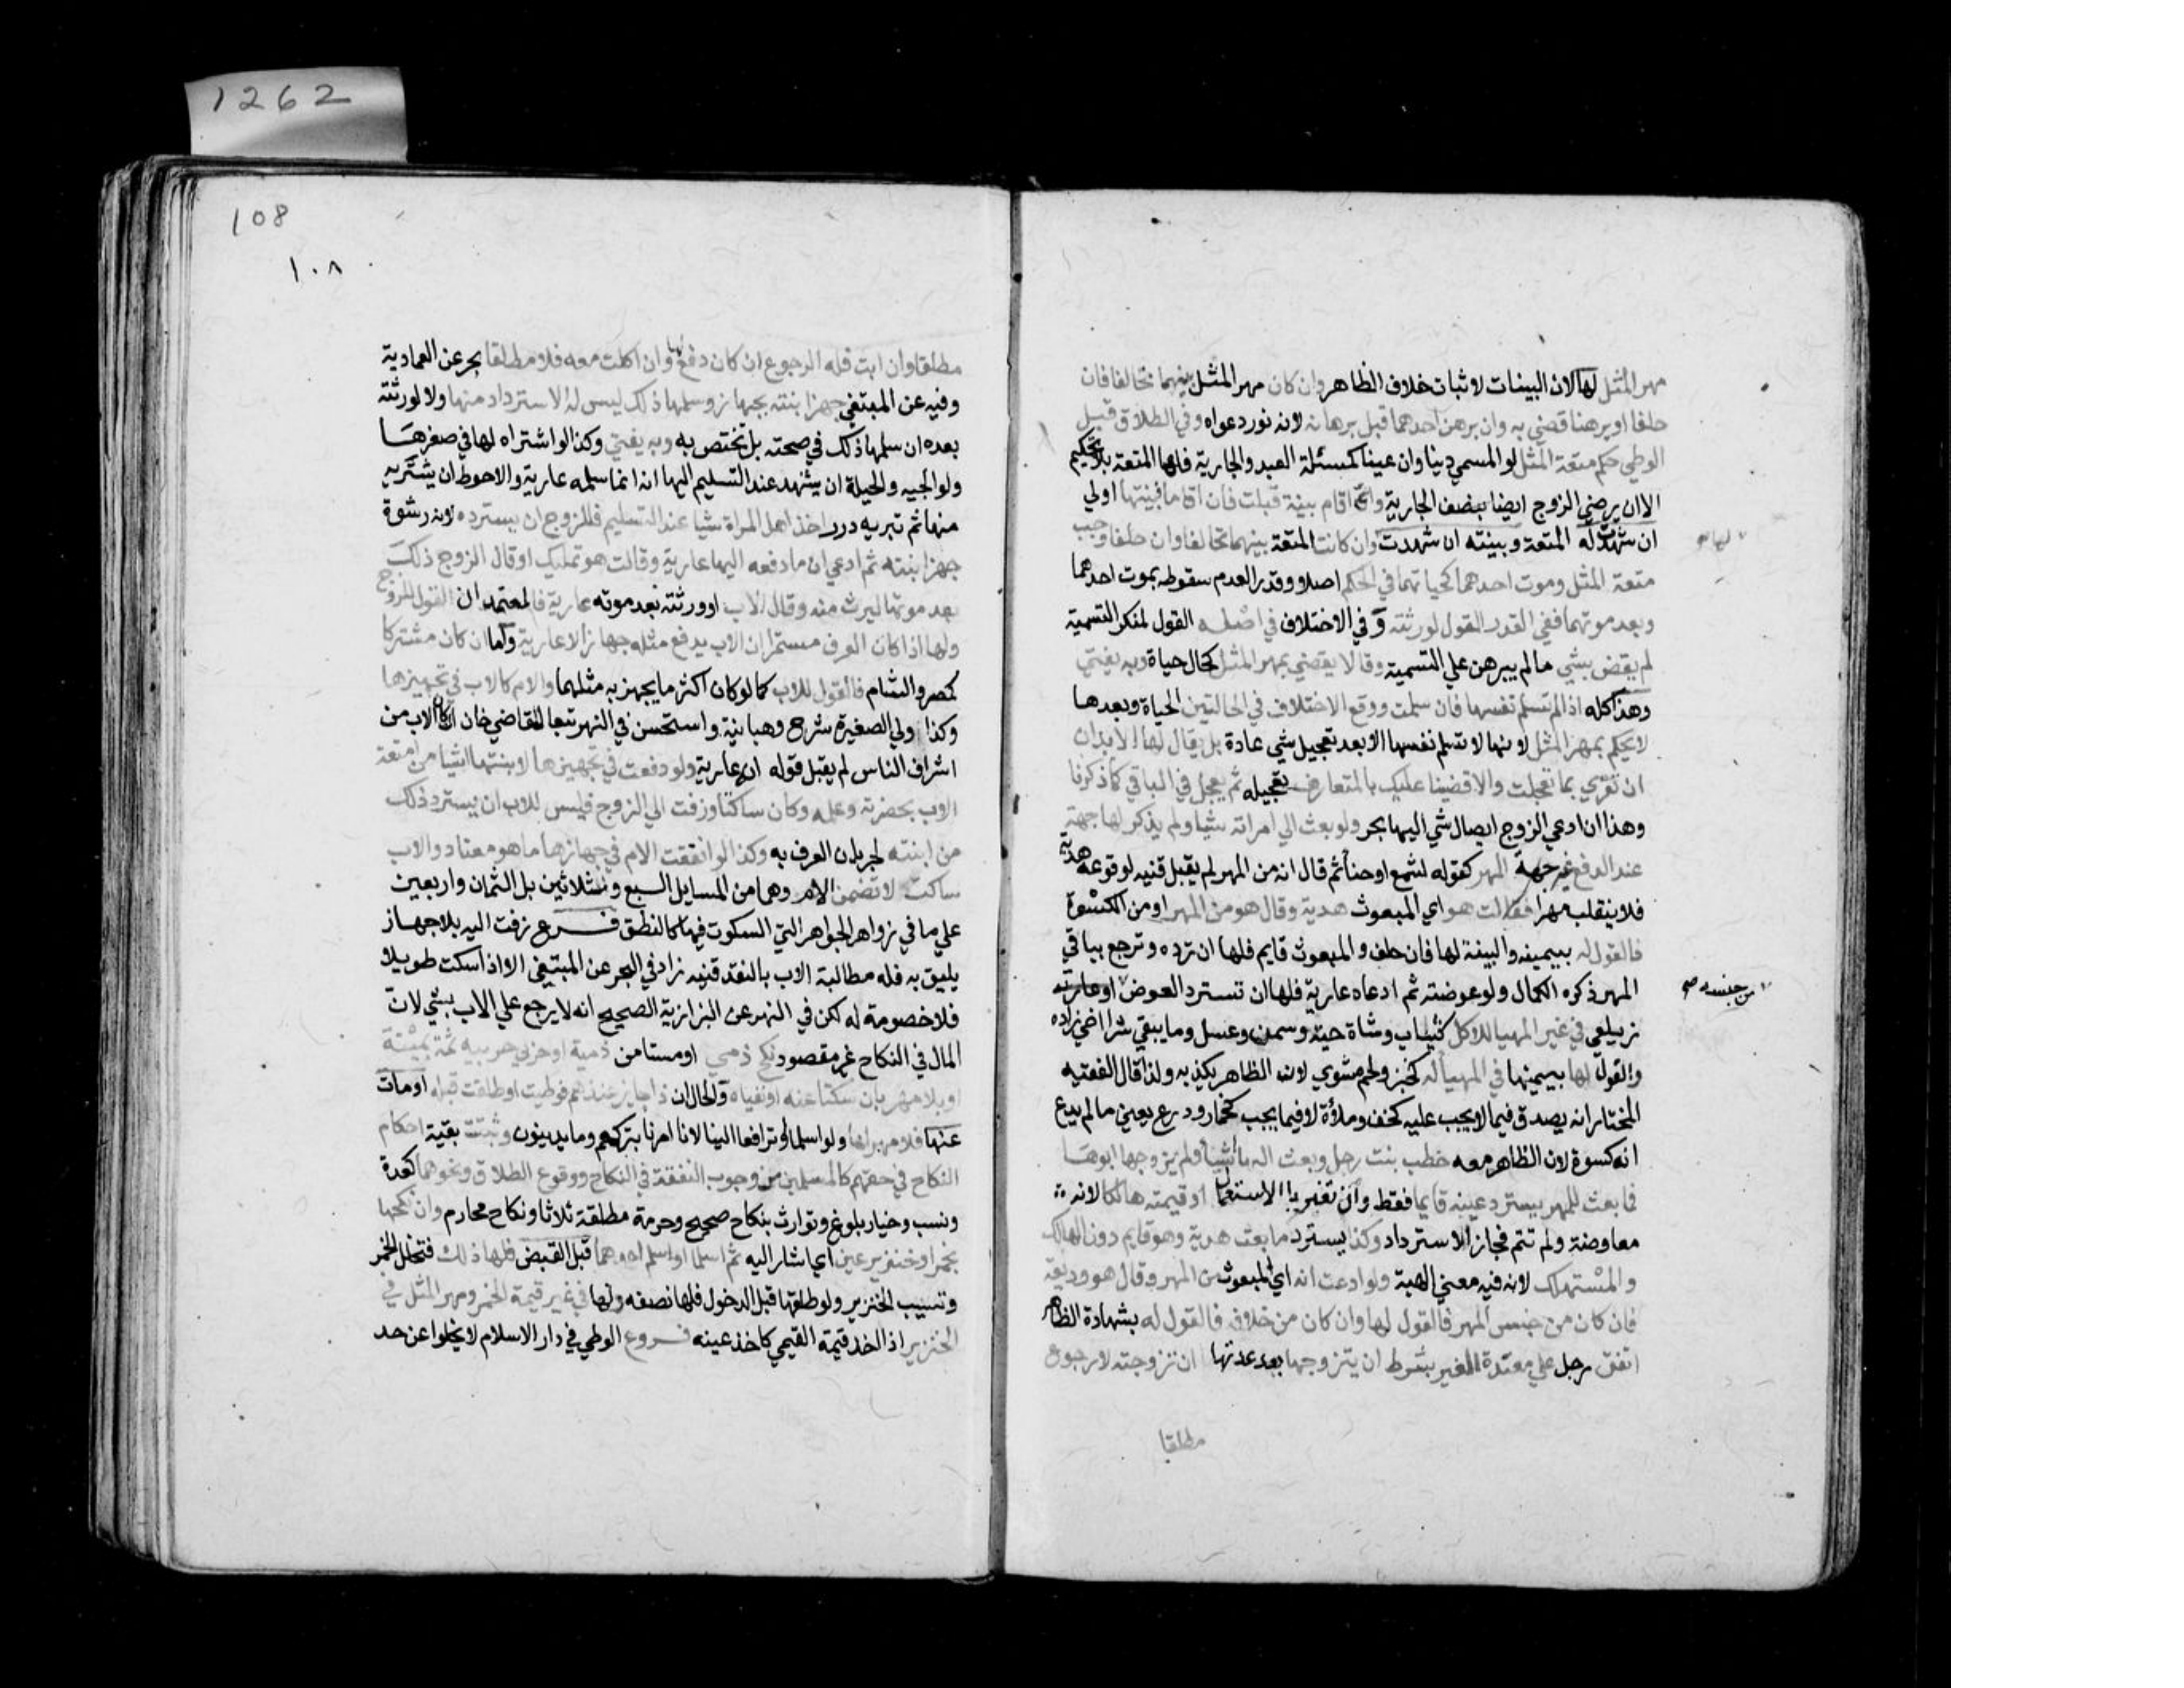 مهر المثل لها لان البينات لاثبات خلاف الظاهر وان كان مهر المثل بينهما تحالفا فان
حلفا او برهنا قضي به وان برهن احدهما قبل برهانه لانه نور دعواه وفي الطلاق قبل
الوطي حكم متعة المثل لو المسمي دينا وان عينا كمسئلة العبد والجارية فلها المتعة بلا تحكيم
الا ان يرضي الزوج ايضا بنصف الجارية واي اقام بينة قبلت فان اقاما فبينتها اولي
ان شهدت له المتعة وبينته ان شهدت وان كانت المتعة بينهما تحالفا وان حلفا وجب
لها صح
متعة المثل وموت احدهما كحياتهما في الحكم اصلا وقدرا لعدم سقوطه بموت احدهما
وبعد موتهما ففي القدر القول لورثته وفي الاختلاف في اصله القول لمنكر التسمية
لم يقض بشي ما لم يبرهن علي التسمية وقالا يقضي بمهر المثل كحال حياة وبه يفتي
وهذا كله اذا لم تسلم نفسها فان سلمت ووقع الاختلاف في الحالتين الحياة وبعدها
لا يحكم بمهر المثل لانها لا تسلم نفسها الا بعد تعجيل شي عادة بل يقال لها لا بد ان
ان تقري بما تعجلت والا قضينا عليك بالمتعارف تعجيله ثم يعمل في الباقي كما ذكرنا
وهذا ان ادعي الزوج ايصال شي اليها بحر ولو بعث الي امراته شيا ولم يذكر لها جهة
عند الدفع غير جهة المهر كقوله لشمع او حنا ثم قال انه من المهر لم يقبل قنيه لوقوعه هدية
فلا ينقلب مهرا فقالت هو اي المبعوث هدية وقال هو من المهر او من الكسوة
فالقول له بيمينه والبينة لها فان حلف والمبعوث قايم فلها ان ترده وترجع بباقي
المهر ذكره الكمال ولو عوضته ثم ادعاه عارية فلها ان تسترد العوض
من جنسه صح
زيلعي في غير المهيا للاكل كثياب وشاة حية وسمن وعسل وما يبقي شهرا اخي زاده
والقول لها بيمينها في المهيا له كخبز ولحم مشوي لان الظاهر يكذبه ولذا قال الفقيه
المختار انه يصدق فيما لا يجب عليه كخف وملاءة لا فيما يجب كخمار ودرع يعني ما لم يدع
انه كسوة لان الظاهر معه خطب بنت رجل وبعث اليها شيا ولم يزوجها ابوها
فما بعث للمهر يسترد عينه قايما فقط وان تغير بالاستعمال او قيمته هالكا لانه
معاوضة ولم تتم فجاز الاسترداد وكذا يسترد ما بعث هدية وهو قايم دون الهالك
والمستهلك لانه فيه معني الهبة ولو ادعت انه اي المبعوث من المهر وقال هو وديعة
فان كان من جنس المهر فالقول لها وان كان من خلافه فالقول له بشهادة الظاهر
انفق رجل علي معتدة الغير بشرط ان يتزوجها بعد عدتها ان تزوجته لا رجوع
مطلقا
1262
108
١٠٨
مطلقا وان ابت فله الرجوع ان كان دفع لها وان اكلت معه فلا مطلقا بحر عن العمادية
وفيه عن المبتغي جهز ابنته بجهاز وسلمها ذلك ليس له الاسترداد منها ولا لورثته
بعده ان سلمها ذلك في صحته بل تختص به وبه يفتي وكذا لو اشتراه لها في صغرها
ولوالجيه والحيلة ان يشهد عند التسليم اليها انه انما سلمه عارية والاحوط ان يشتريه
منها ثم تبريه درر اخذ اهل المراة شيا عند التسليم فللزوج ان يسترده لانه رشوة
جهز ابنته ثم ادعي ان ما دفعه اليها عارية وقالت هو تمليك او قال الزوج ذلك
بعد موتها ليرث منه وقال الاب او ورثته بعد موته عارية فالمعتمد ان القول للزوج
ولها اذا كان العرف مستمرا ان الاب يدفع مثله جهازا لا عارية واما ان كان مشتركا
كمصر والشام فالقول للاب كما لو كان اكثر ما يجهز به مثلها والام كالاب في تجهيزها
وكذا ولي الصغيرة شرح وهبانية واستحسن في النهر تبعا للقاضي خان ان كان الاب من
اشراف الناس لم يقبل قوله انه عارية ولو دفعت في تجهيزها لابنتها اشيا من امتعة
الاب بحضرته وعلمه وكان ساكتا وزفت الي الزوج فليس للاب ان يسترد ذلك
من ابنته لجريان العرف به وكذا لو انفقت الام في جهازها ما هو معتاد والاب
ساكت لا تضمن الام وهما من المسايل السبع وثلاثين بل الثمان واربعين
علي ما في زواهر الجواهر التي السكوت فيها كالنطق فرع زفت اليه بلا جهاز
يليق به فله مطالبة الاب بالنقد قنيه زاد في البحر عن المبتغي الا اذا سكت طويلا
فلا خصومة له لكن في النهر عن البزازية الصحيح انه لا يرجع علي الاب بشي لان
المال في النكاح غير مقصود نكح ذمي او مستامن ذمية او حربي حربية ثمة بميتة
او بلا مهر بان سكتا عنه او نفياه والحال ان ذا جايز عندهم فوطيت او طلقت قبله او مات
عنها فلا مهر لها ولو اسلما او ترافعا الينا لانا امرنا بتركهم وما يدينون وثبتت بقية احكام
النكاح في حقهم كالمسلمين من وجوب النفقة في النكاح ووقوع الطلاق ونحوهما كعدة
ونسب وخيار بلوغ وتوارث بنكاح صحيح وحرمة مطلقة ثلاثا ونكاح محارم وان نكحها
بخمر او خنزير عين اي اشار اليه ثم اسلما او اسلم احدهما قبل القبض فلها ذلك فتخلل الخمر
وتسيب الخنزير ولو طلقها قبل الدخول فلها نصفه ولها في غير قيمة الخمر ومهر المثل في
الخنزير اذ اخذ قيمة القيمي كاخذ عينه فروع الوطي في دار الاسلام لا يخلوا عن حد